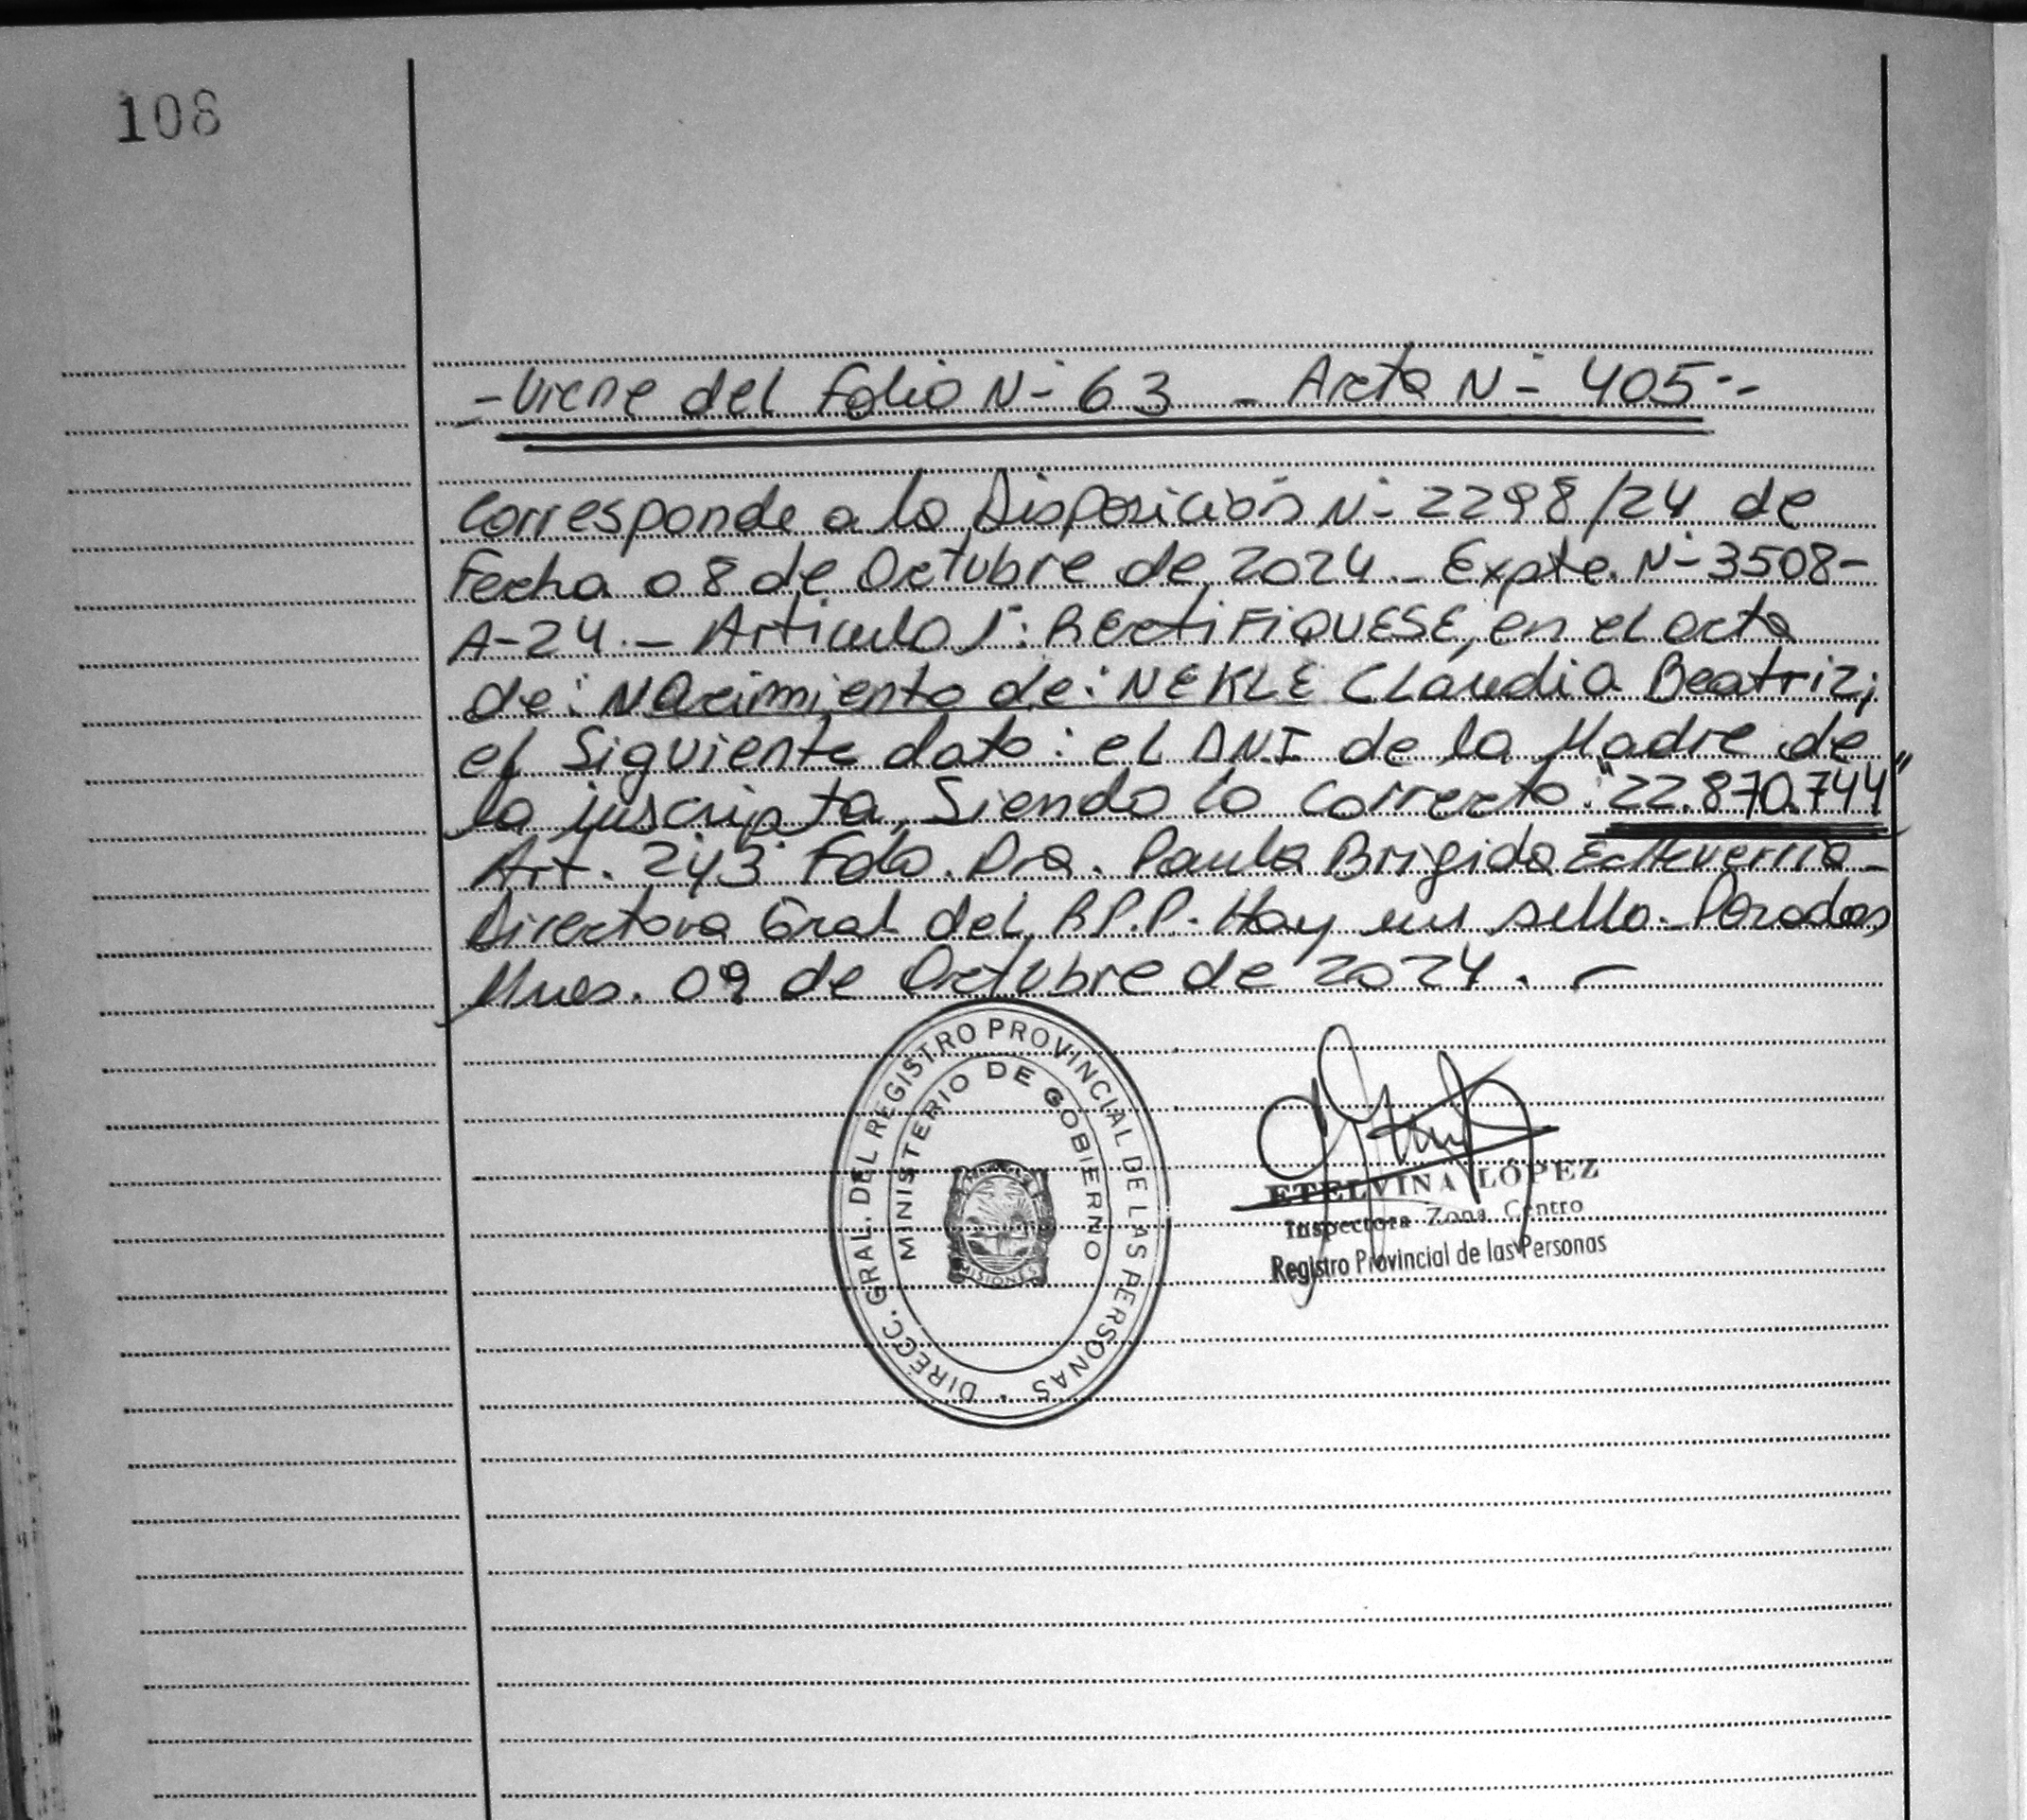 108
-Viene del Folio N- 63 - Acta N- 405--
Corresponde a la Disposición N- 2298/24 de
Fecha 08 de Octubre de 2024.- Expte. N-3508-
A-24.- Articulo 1°: RECTIFIQUESE, en el acta
de: Nacimiento de: NEKLE Claudia Beatriz;
el Siguiente dato: el DNI de la Madre de
la inscripta, Siendo lo correcto: "22.870.744"
Art. 243 Fdo. Dra. Paula Brigida Echeverria-
Directora Gral del R.P.P. Hay un sello.- Posadas
Mnes. 09 de Octubre de 2024.-
DIRECC. GRAL. DEL REGISTRO PROVINCIAL DE LAS PERSONAS
MINISTERIO DE GOBIERNO
MISIONES
ETELVINA LÓPEZ
Inspectora Zona Centro
Registro Provincial de las Personas